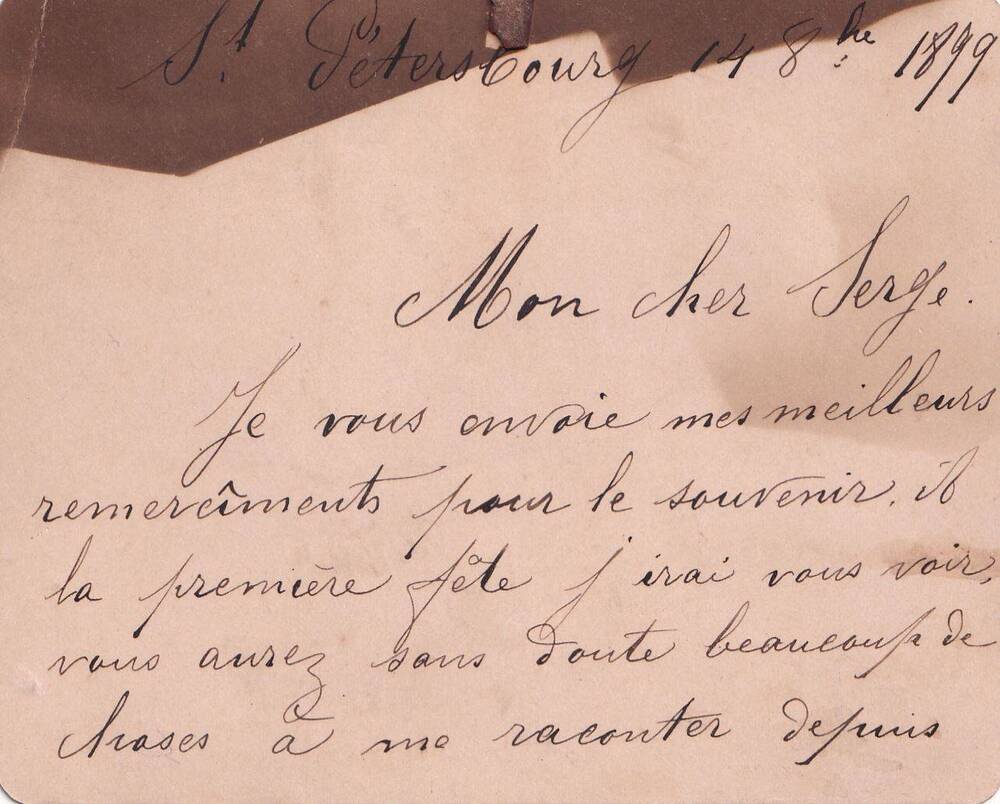 St Pétersbourg 14 8bre 1899
Mon cher Serge.
Je vous envoie mes meilleurs
remercîments pour le souvenir. à
la première fête j'irai vous voir,
vous aurez sans doute beaucoup de
choses à me raconter depuis